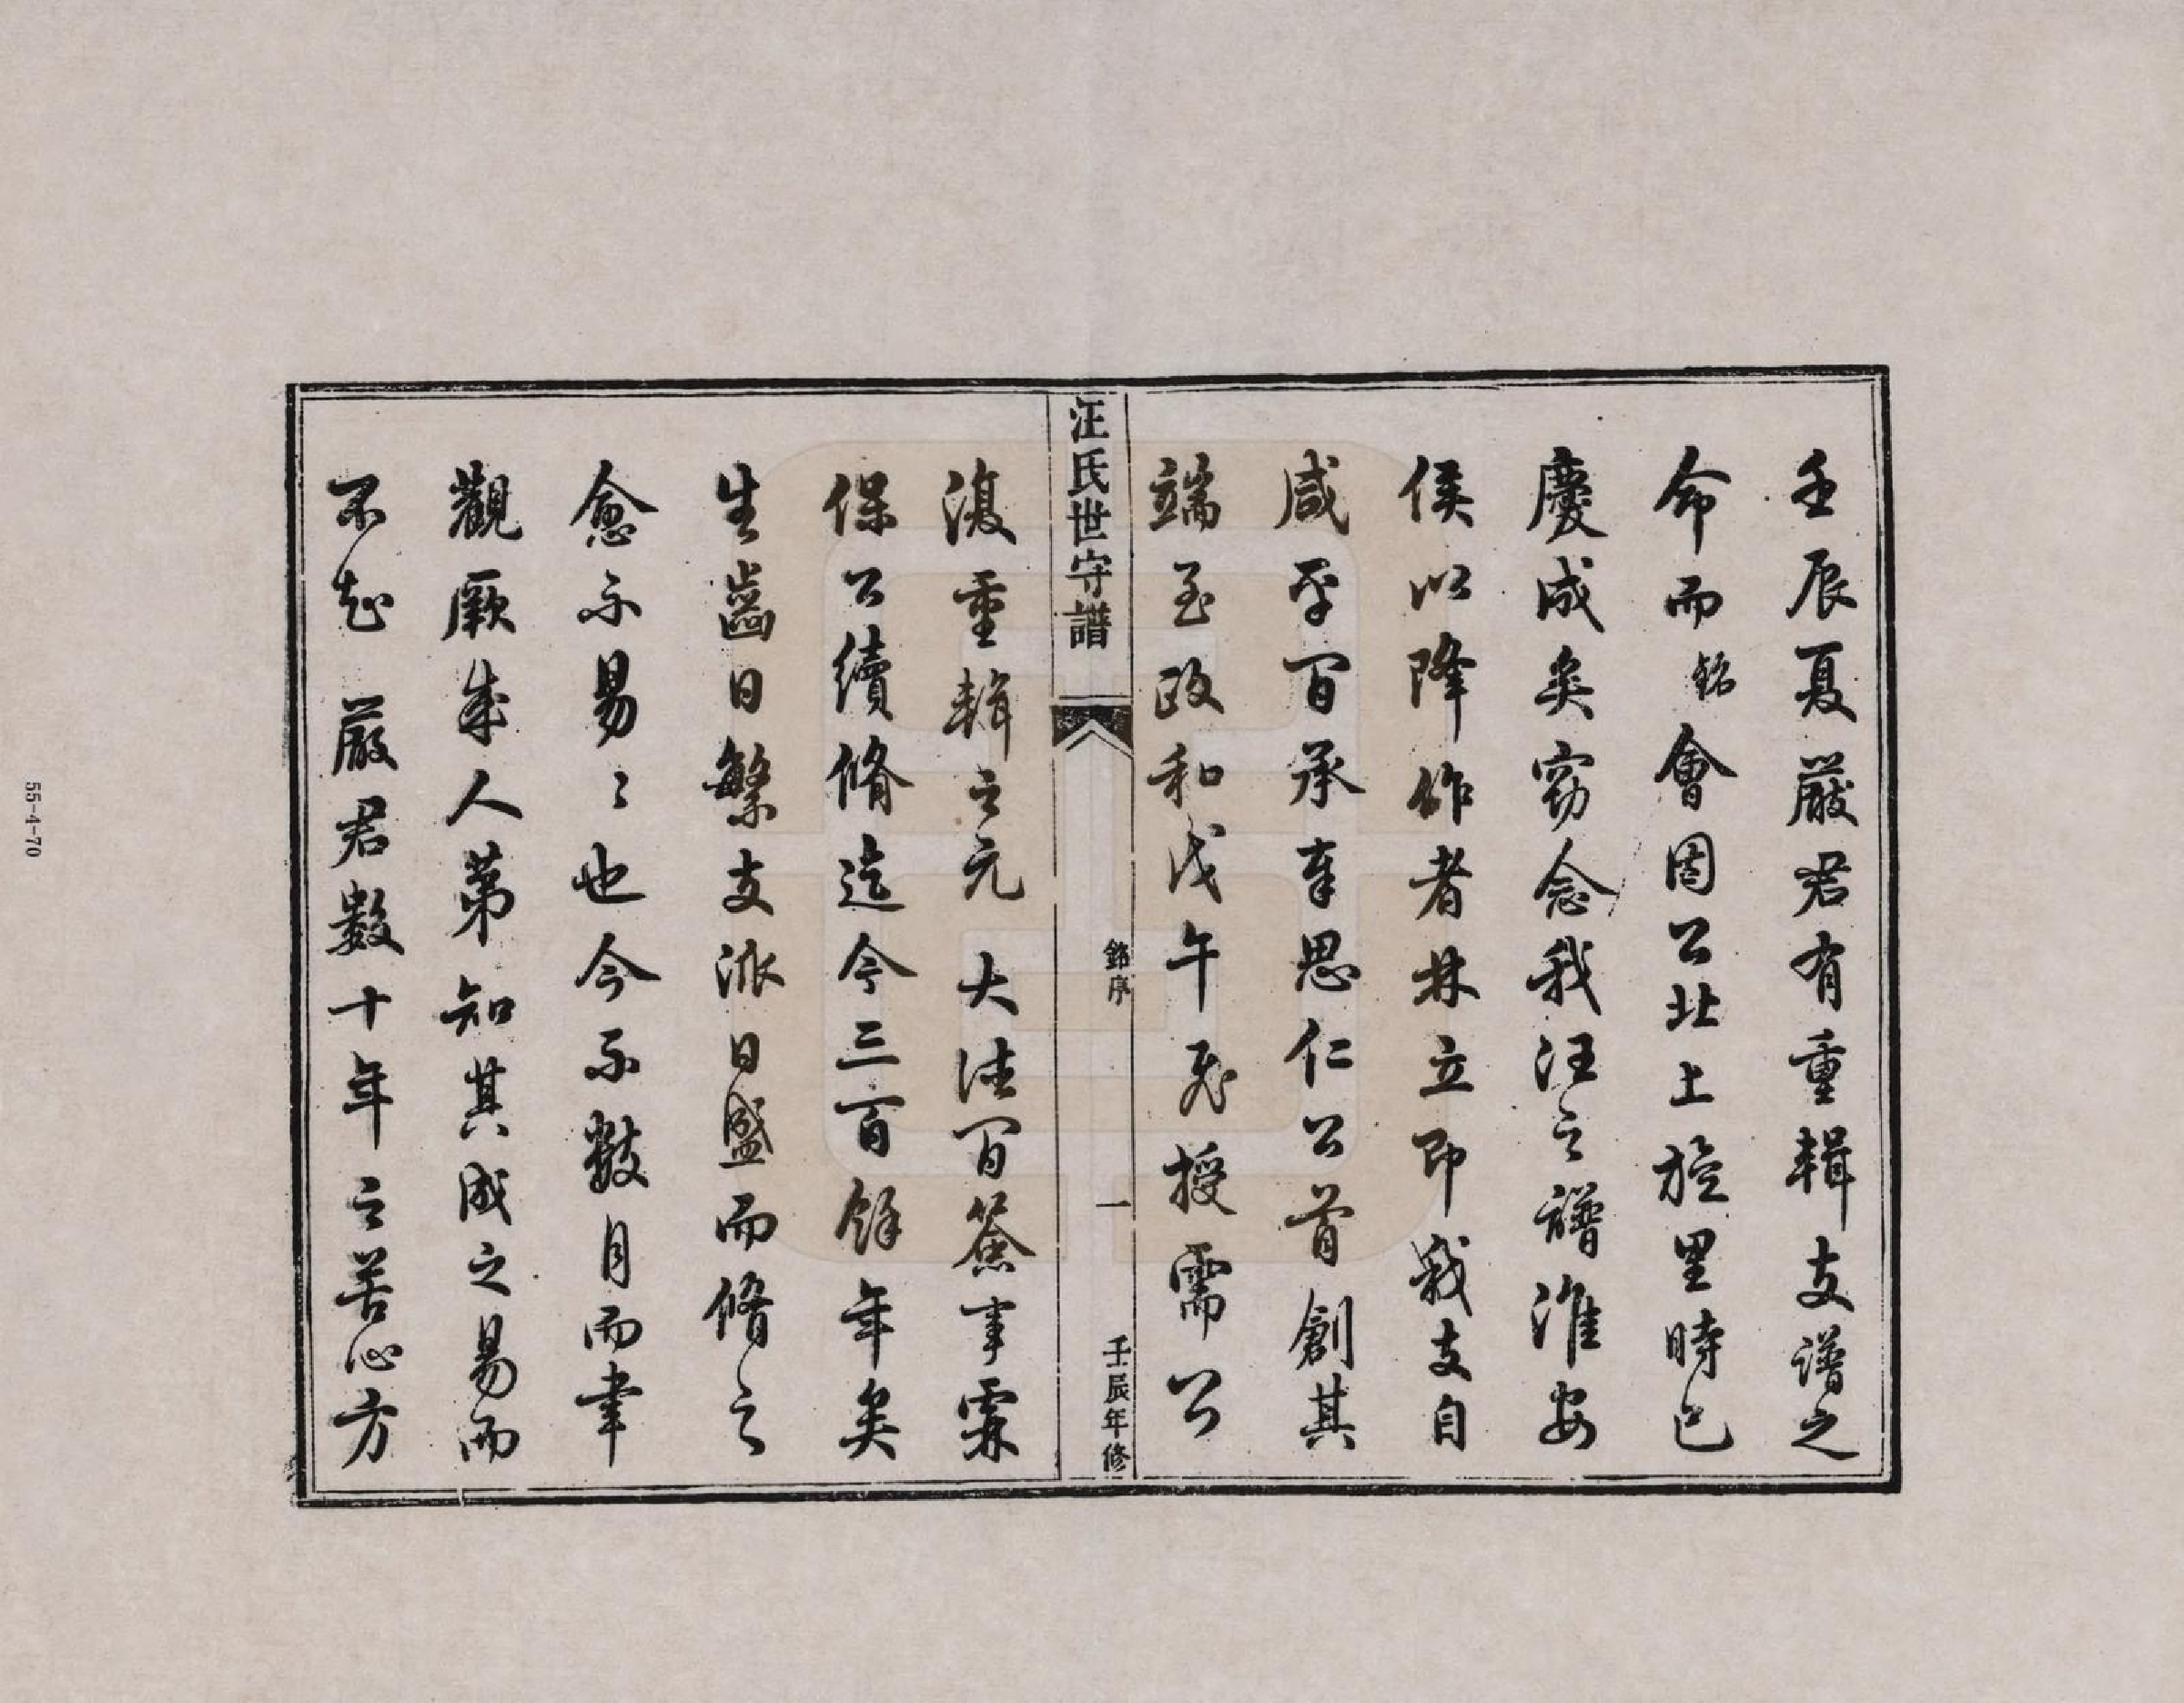 壬辰夏嚴君有重輯支譜之
命而銘會因公北上旋里時已
慶成矣竊念我汪之譜淮安
侯以降作者林立即我支自
咸平間承事思仁公首創其
端至政和戊午承授需公
復重輯之元大德間僉事霖
保公續脩迄今三百餘年矣
生齒日繁支派日盛而脩之
愈不易易也今不數月而聿
觀厥成人第知其成之易而
不知嚴君數十年之苦心方
汪氏世守譜
銘序
一
壬辰年修
55-4-70